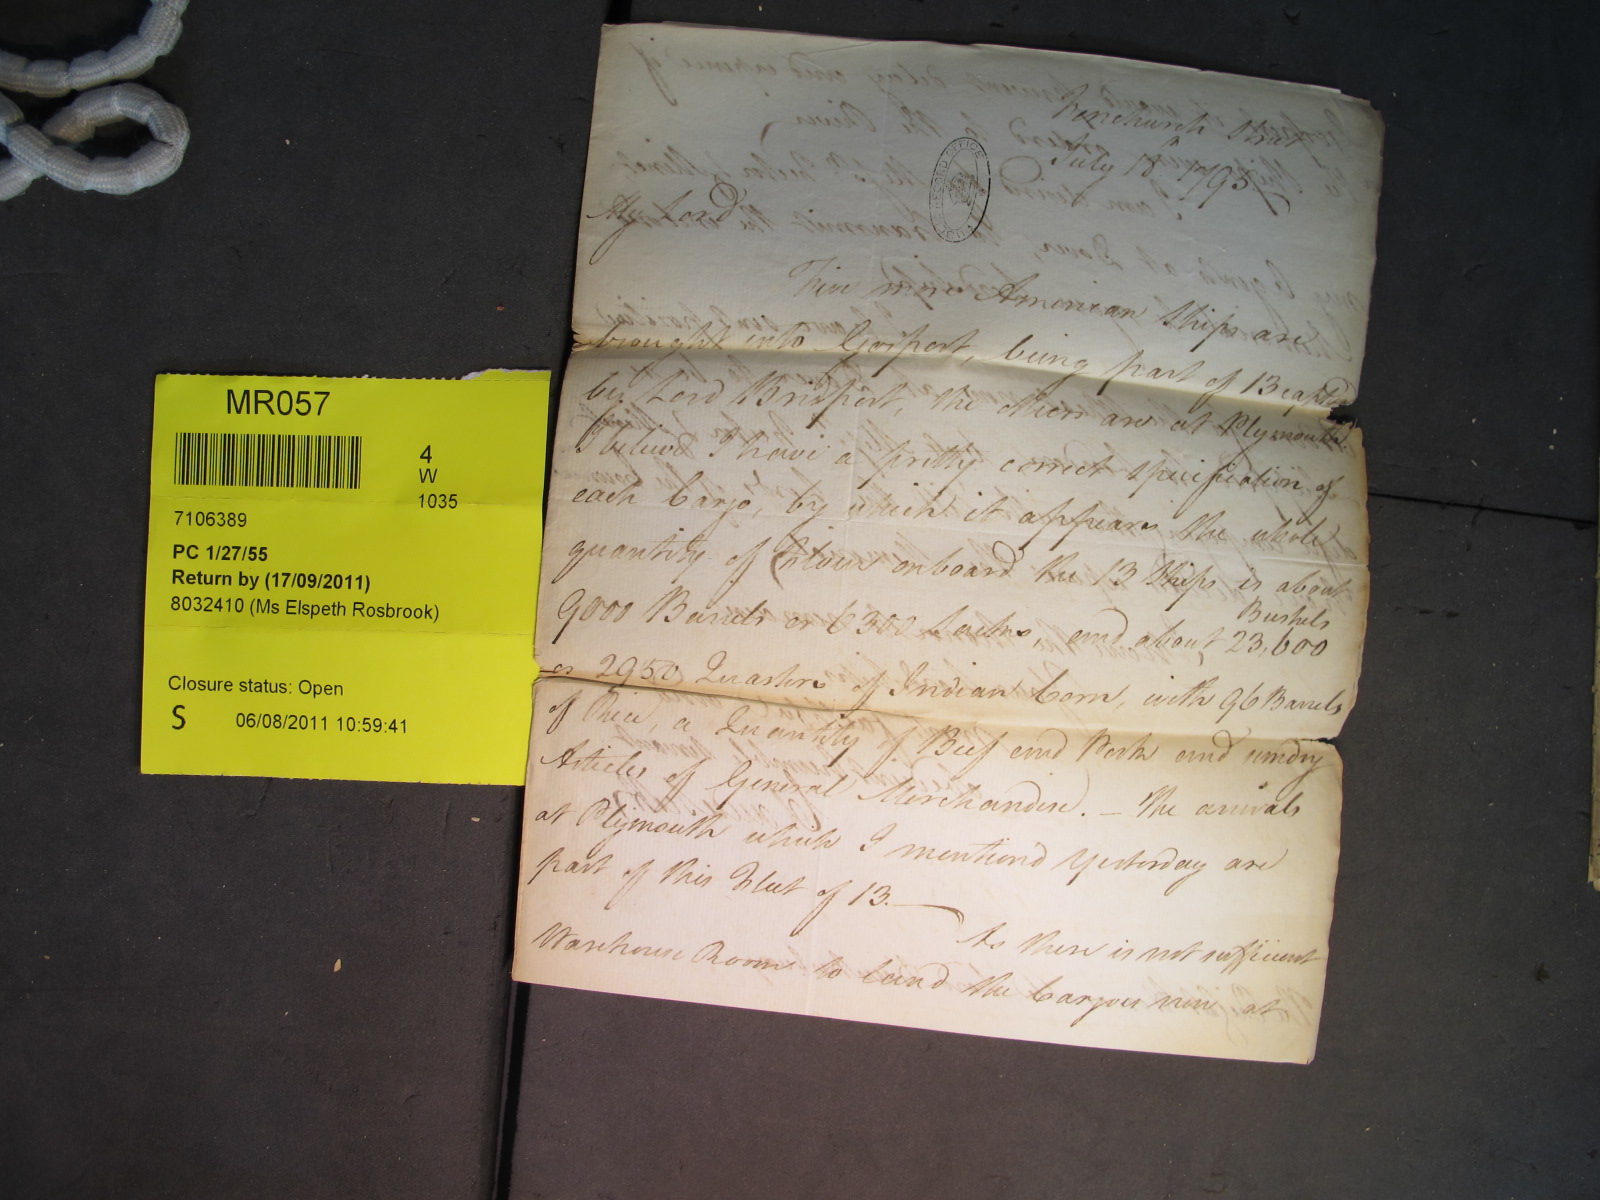 MR057
4
W
1035
7106389
PC 1/27/55
Return by (17/09/2011)
8032410 (Ms Elspeth Rosbrook)
Closure status: Open
S 06/08/2011 10:59:41
Fenchurch Street
July 18th 1795
RECORD OFFICE
My Lord
Five more American Ships are
brought into Gosport, being part of 13 captd
by Lord Bridport, the others are at Plymouth.
I believe I have a pretty correct specification of
each Cargo, by which it appears the whole
quantity of Flour onboard the 13 Ships is about
Bushels
9000 Barrels or 6300 Sacks, and about 23,600
or 2950 Quarters of Indian Corn, with 96 Barrels
of Rice, a Quantity of Beef and Pork and sundry
Articles of General Merchandise. — The arrivals
at Plymouth which I mentiond Yesterday are
part of this Fleet of 13. —
As there is not sufficient
Warehouse Room to land the Cargoes now at